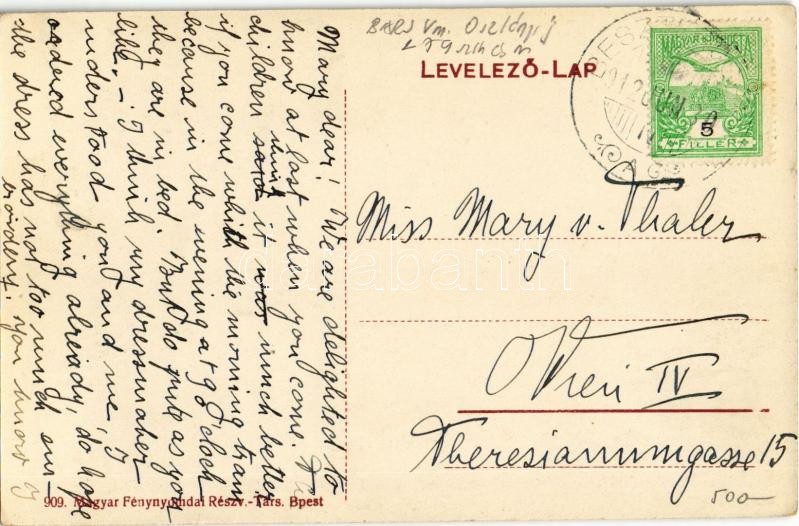 BARS Vm. Oszlány
LEVELEZŐ-LAP
MAGYAR KIR. POSTA
5
FILLER
912 JUN
Miss Mary v. Thaler
Wien IV
Theresianumgasse 15
500-
Mary dear! We are delighted to
know at last when you come. The
children think said it was much better
if you come whith the morning train
because in the evening at 9 o'clock
they are in bed. But do quite as you
like. - I think my dressmaker
understood you and me, I
ordered everything already, do hope
the dress has not too much em-
broidery. you know I
909. Magyar Fénynyomdai Részv.-Társ. Bpest
darabanth